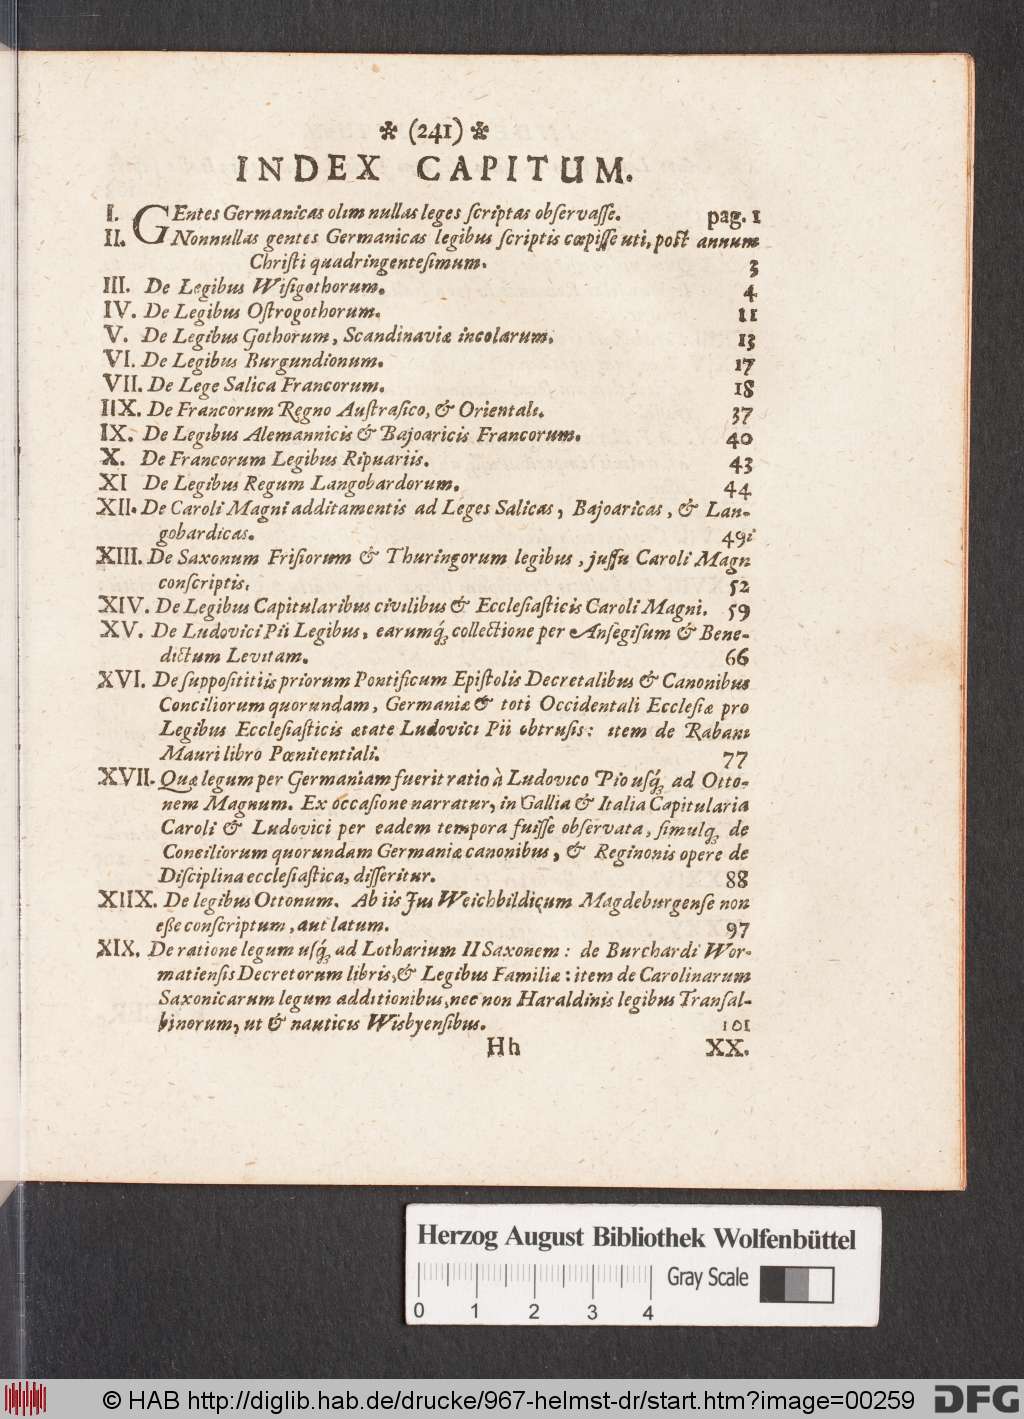 ✽ (241) ✽
INDEX CAPITUM.
I. GEntes Germanicas olim nullas leges ſcriptas obſervaſſe. pag. 1
II. Nonnullas gentes Germanicas legibus ſcriptis cœpiſſe uti, poſt annum
Chriſti quadringenteſimum. 3
III. De Legibus Wiſigothorum. 4
IV. De Legibus Oſtrogothorum. 11
V. De Legibus Gothorum, Scandinaviæ incolarum. 13
VI. De Legibus Burgundionum. 17
VII. De Lege Salica Francorum. 18
IIX. De Francorum Regno Auſtraſico, & Orientali. 37
IX. De Legibus Alemannicis & Bajoaricis Francorum. 40
X. De Francorum Legibus Ripuariis. 43
XI De Legibus Regum Langobardorum. 44
XII. De Caroli Magni additamentis ad Leges Salicas, Bajoaricas, & Lan-
gobardicas. 49i
XIII. De Saxonum Friſiorum & Thuringorum legibus, juſſu Caroli Magn
conſcriptis. 52
XIV. De Legibus Capitularibus civilibus & Eccleſiaſticis Caroli Magni. 59
XV. De Ludovici Pii Legibus, earumq́; collectione per Anſegiſum & Bene-
dictum Levitam. 66
XVI. De ſuppoſititiis priorum Pontificum Epiſtolis Decretalibus & Canonibus
Conciliorum quorundam, Germaniæ & toti Occidentali Eccleſiæ pro
Legibus Eccleſiaſticis ætate Ludovici Pii obtruſis: item de Rabani
Mauri libro Pœnitentiali. 77
XVII. Quæ legum per Germaniam fuerit ratio à Ludovico Pio uſq́; ad Otto-
nem Magnum. Ex occaſione narratur, in Gallia & Italia Capitularia
Caroli & Ludovici per eadem tempora fuiſſe obſervata, ſimulq; de
Conciliorum quorundam Germaniæ canonibus, & Reginonis opere de
Diſciplina eccleſiaſtica, diſſeritur. 88
XIIX. De legibus Ottonum. Ab iis Jus Weichbildicum Magdeburgenſe non
eſſe conſcriptum, aut latum. 97
XIX. De ratione legum uſq́; ad Lotharium II Saxonem: de Burchardi Wor-
matienſis Decretorum libris, & Legibus Familiæ: item de Carolinarum
Saxonicarum legum additionibus, nec non Haraldinis legibus Tranſal-
binorum, ut & nauticis Wisbyenſibus. 101
Hh XX.
Herzog August Bibliothek Wolfenbüttel
Gray Scale
0 1 2 3 4
© HAB http://diglib.hab.de/drucke/967-helmst-dr/start.htm?image=00259 DFG